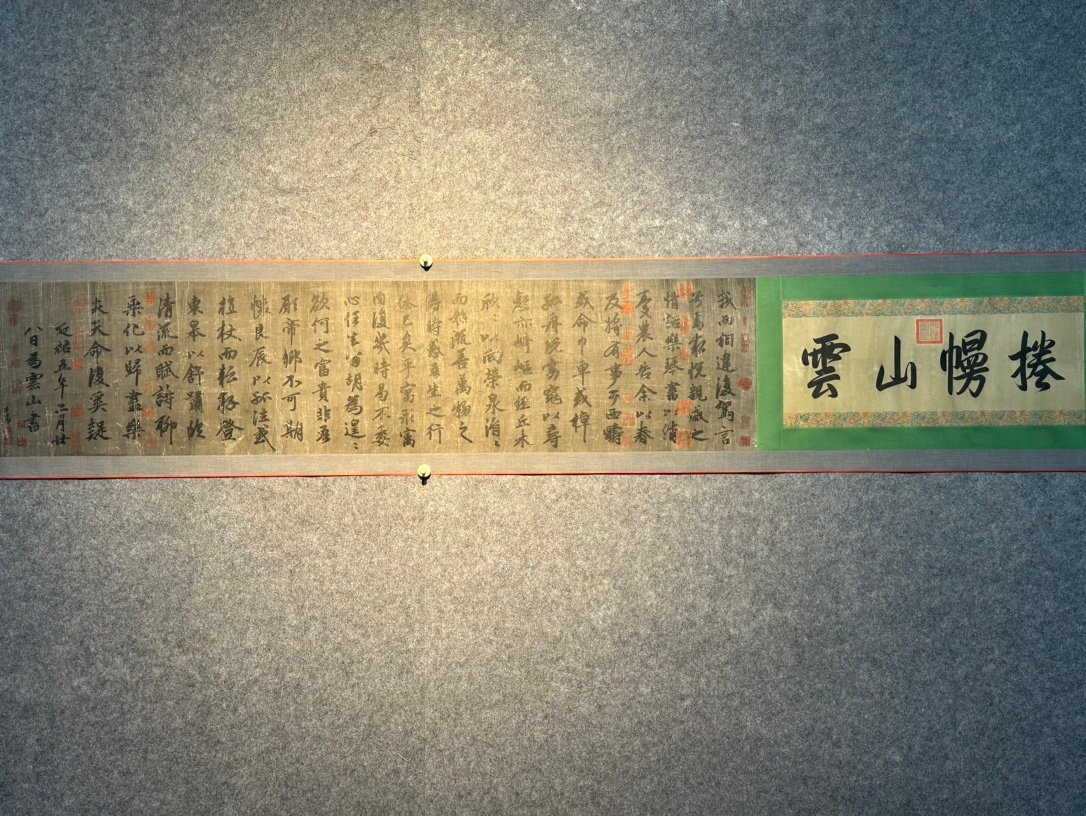 捲幔山雲
我而相違復駕言
兮焉求悅親戚之
情話樂琴書以消
憂農人告余以春
及將有事乎西疇
或命巾車或棹
孤舟既窈窕以尋
壑亦崎嶇而經丘木
欣〻以向榮泉涓〻
而始流善萬物之
得時感吾生之行
休已矣乎寓形寓
內復幾時曷不委
心任去留胡為遑〻
欲何之富貴非吾
願帝鄉不可期
懷良辰以孤往或
植杖而耘耔登
東皋以舒嘯臨
清流而賦詩聊
乘化以歸盡樂
夫天命復奚疑
延祐五年月廿
八日為雲山書